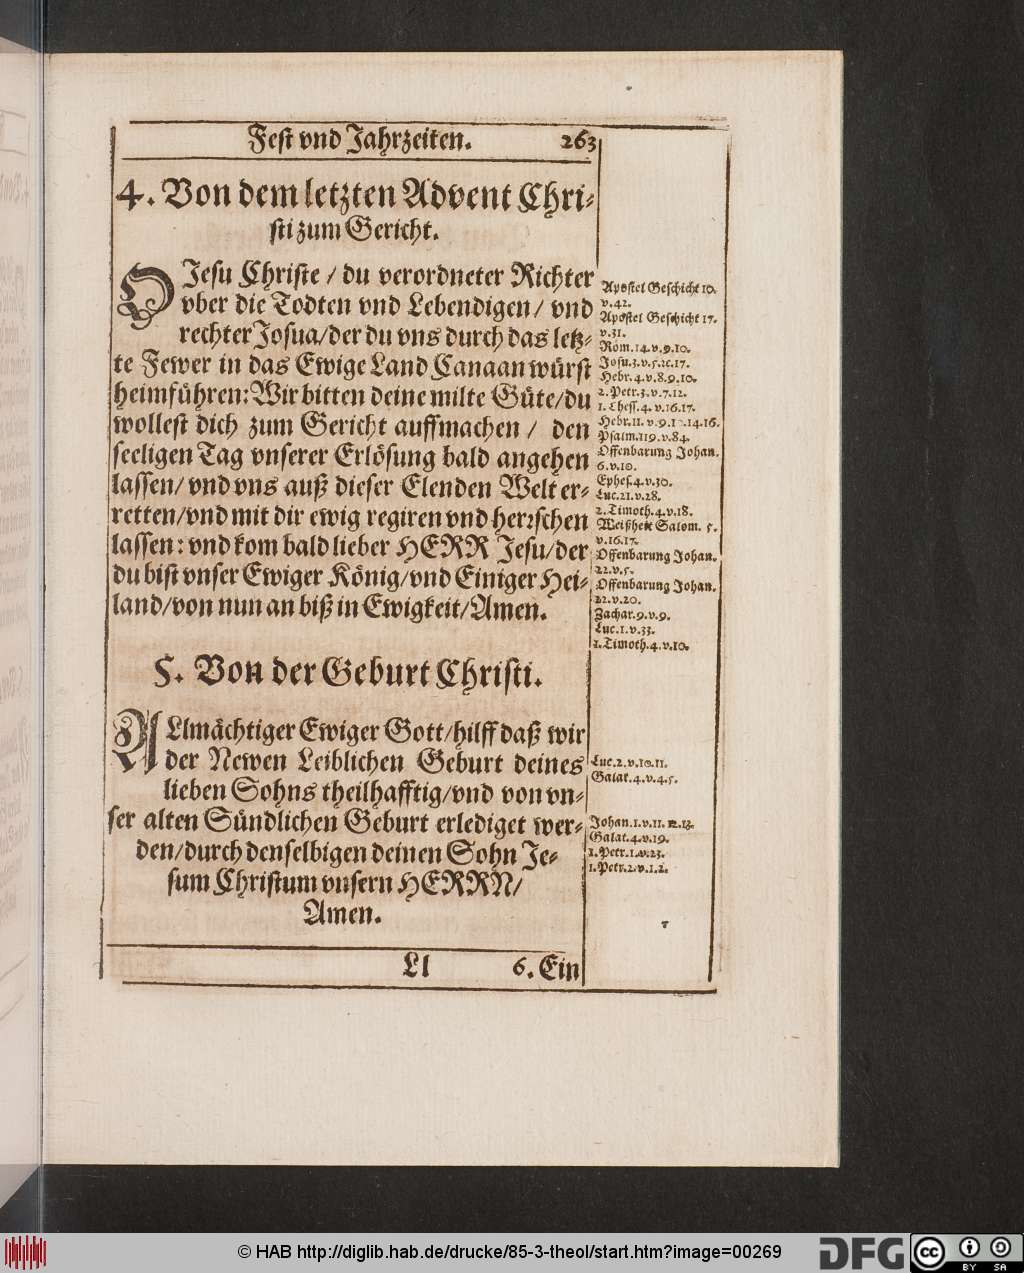 Fest vnd Jahrzeiten. 263
4. Von dem letzten Advent Chri-
sti zum Gericht.
O Jesu Christe / du verordneter Richter
vber die Todten vnd Lebendigen / vnd
rechter Josua/der du vns durch das letz-
te Fewer in das Ewige Land Canaan würst
heimführen: Wir bitten deine milte Güte/du
wollest dich zum Gericht auffmachen / den
seeligen Tag vnserer Erlösung bald angehen
lassen/ vnd vns auß dieser Elenden Welt er-
retten/vnd mit dir ewig regiren vnd herrschen
lassen: vnd kom bald lieber HERR Jesu/der
du bist vnser Ewiger König/vnd Einiger Hei-
land/von nun an biß in Ewigkeit/Amen.
Apostel Geschicht 10.
v.42.
Apostel Geschicht 17.
v.31.
Röm.14.v.9.10.
Josu.3.v.5.ec.17.
Hebr.4.v.8.9.10.
2.Petr.3.v.7.12.
1.Thess.4.v.16.17.
Hebr.11.v.9.10.14.16.
Psalm.119.v.84.
Offenbarung Johan.
6.v.10.
Ephes.4.v.30.
Luc.21.v.28.
2.Timoth.4.v.18.
Weißheit Salom. 5.
v.16.17.
Offenbarung Johan.
22.v.5.
Offenbarung Johan.
22.v.20.
Zachar.9.v.9.
Luc.1.v.33.
1.Timoth.4.v.10.
5. Von der Geburt Christi.
ALlmächtiger Ewiger Gott/hilff daß wir
der Newen Leiblichen Geburt deines
lieben Sohns theilhafftig/vnd von vn-
ser alten Sündlichen Geburt erlediget wer-
den/durch denselbigen deinen Sohn Je-
sum Christum vnsern HERRN/
Amen.
Luc.2.v.10.11.
Galat.4.v.4.5.
Johan.1.v.11.12.13.
Galat.4.v.19.
1.Petr.1.v.23.
1.Petr.2.v.1.2.
Ll 6. Ein
© HAB http://diglib.hab.de/drucke/85-3-theol/start.htm?image=00269
DFG
cc BY SA